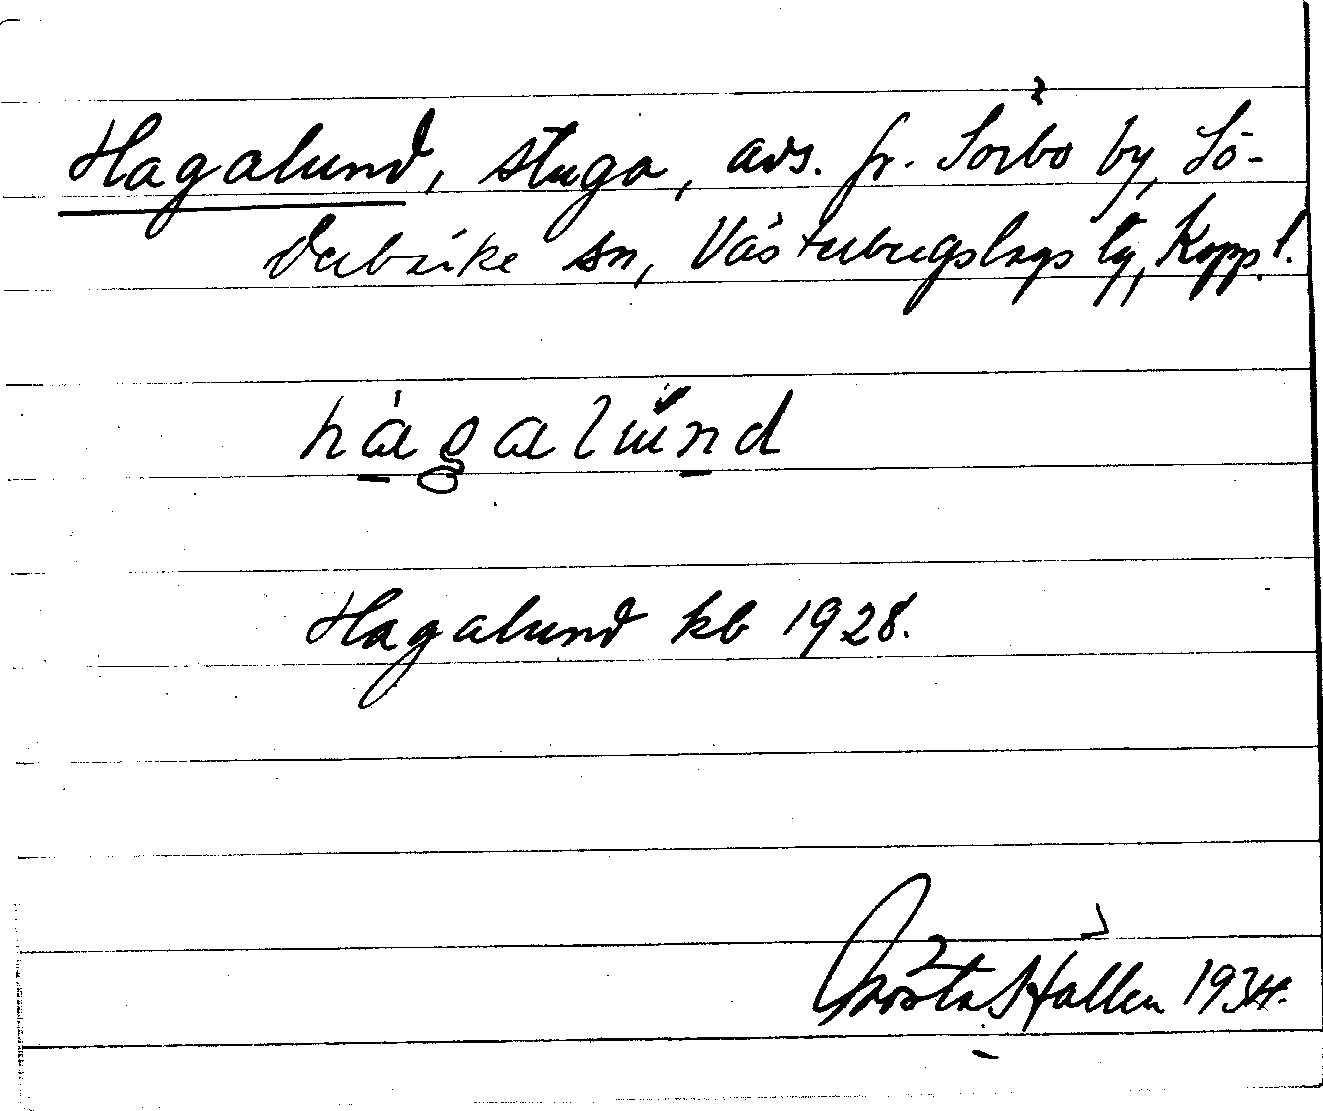 Hagalund, stuga, avs. fr. Sörbo by, Sö-
derbärke sn, Västerbergslags tg, Kopp. l.
hàgalùnd
Hagalund kb 1928.
Gösta Hallén 1934.